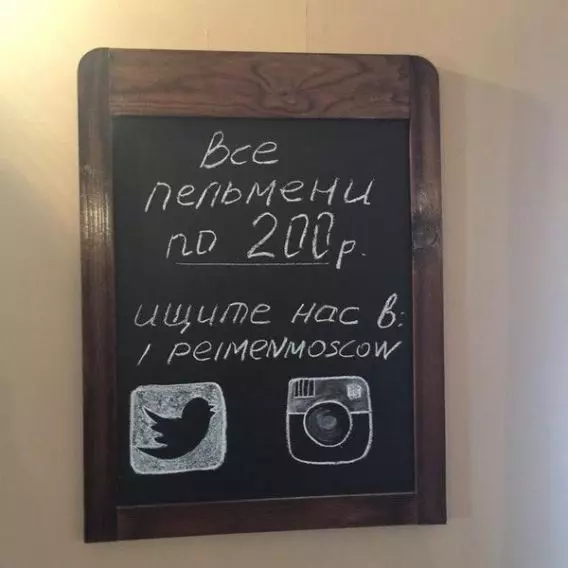 Все
пельмени
по 200р.
ищите нас в:
/ PELMENMOSCOW